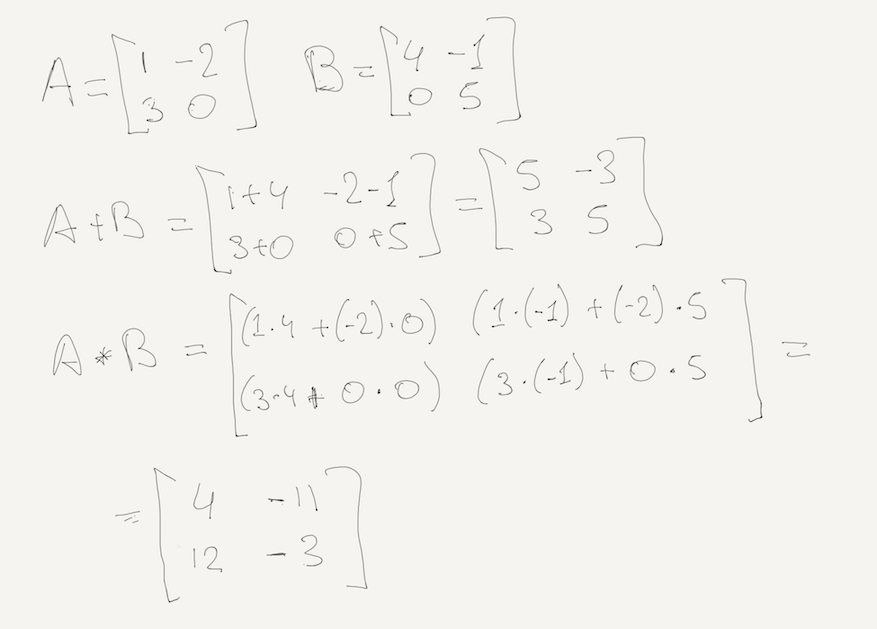 A = [1 -2; 3 0] B = [4 -1; 0 5]
A+B = [1+4 -2-1; 3+0 0+5] = [5 -3; 3 5]
A * B = [(1·4 + (-2)·0) (1·(-1) + (-2)·5; (3·4 + 0·0) (3·(-1) + 0·5] =
= [4 -11; 12 -3]